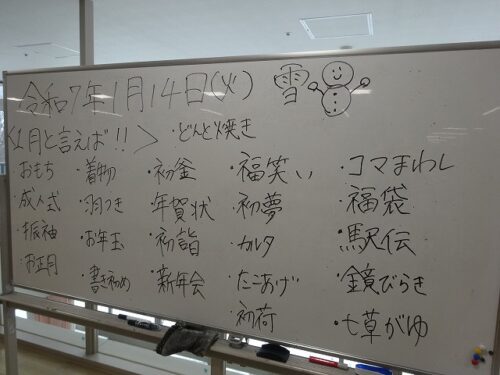 令和7年1月14日(火) 雪
<1月と言えば!!> ・どんと焼き
おもち ・着物 ・初釜 ・福笑い ・コマまわし
・成人式 ・羽つき 年賀状 ・初夢 ・福袋
・振袖 ・お年玉 ・初詣 ・カルタ ・駅伝
・お正月 ・書き初め ・新年会 ・たこあげ ・鏡びらき
・初荷 ・七草がゆ